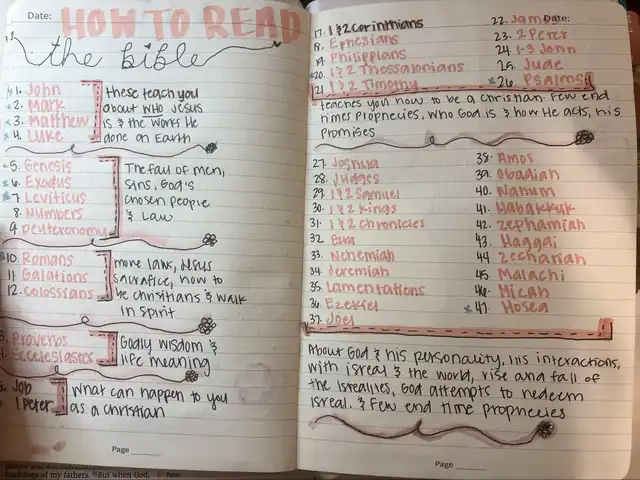 Date:
HOW TO READ
the bible
1. John
2. Mark
3. Matthew
4. Luke
these teach you
about WHO JESUS
is & the works He
done on Earth
5. Genesis
6. Exodus
7. Leviticus
8. Numbers
9. Deuteronomy
The fall of men,
sins, God's
chosen people
& Law
10. Romans
11. Galations
12. Colossians
more laws, Jesus
sacrifice, how to
be christians & walk
in Spirit
Proverbs
Eccelesiastes
Godly wisdom &
life meaning
Job
1 Peter
What can happen to you
as a christian
Page
traditions of my fathers. But when God,
Date:
17. 1 & 2 Corinthians
18. Ephesians
19. Philippians
20. 1 & 2 Thessalonians
21. 1 & 2 Timothy
22. James
23. 2 Peter
24. 1-3 John
25. Jude
26. Psalms
teaches you how to be a Christian. Few end
times Prophecies, Who God is & how He acts, his
promises
27. Joshua
28. Judges
29. 1 & 2 Samuel
30. 1 & 2 Kings
31. 1 & 2 Chronicles
32. Ezra
33. Nehemiah
34. Jeremiah
35. Lamentations
36. Ezekiel
37. Joel
38. Amos
39. Obadiah
40. Nahum
41. Habakkuk
42. Zephaniah
43. Haggai
44. Zechariah
45. Malachi
46. Micah
47. Hosea
About God & his personality, his interactions,
with isreal & the world, rise and fall of
the Isrealites, God attempts to redeem
Isreal. & Few end time prophecies
Page